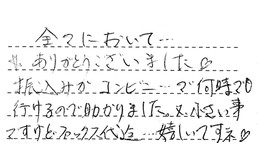 全てにおいて…
ありがとうございました♡
振込みがコンビニ…で何時でも
行けるので助かりました。又、小さい事
ですけどボックス代迄…嬉しいですネ♡